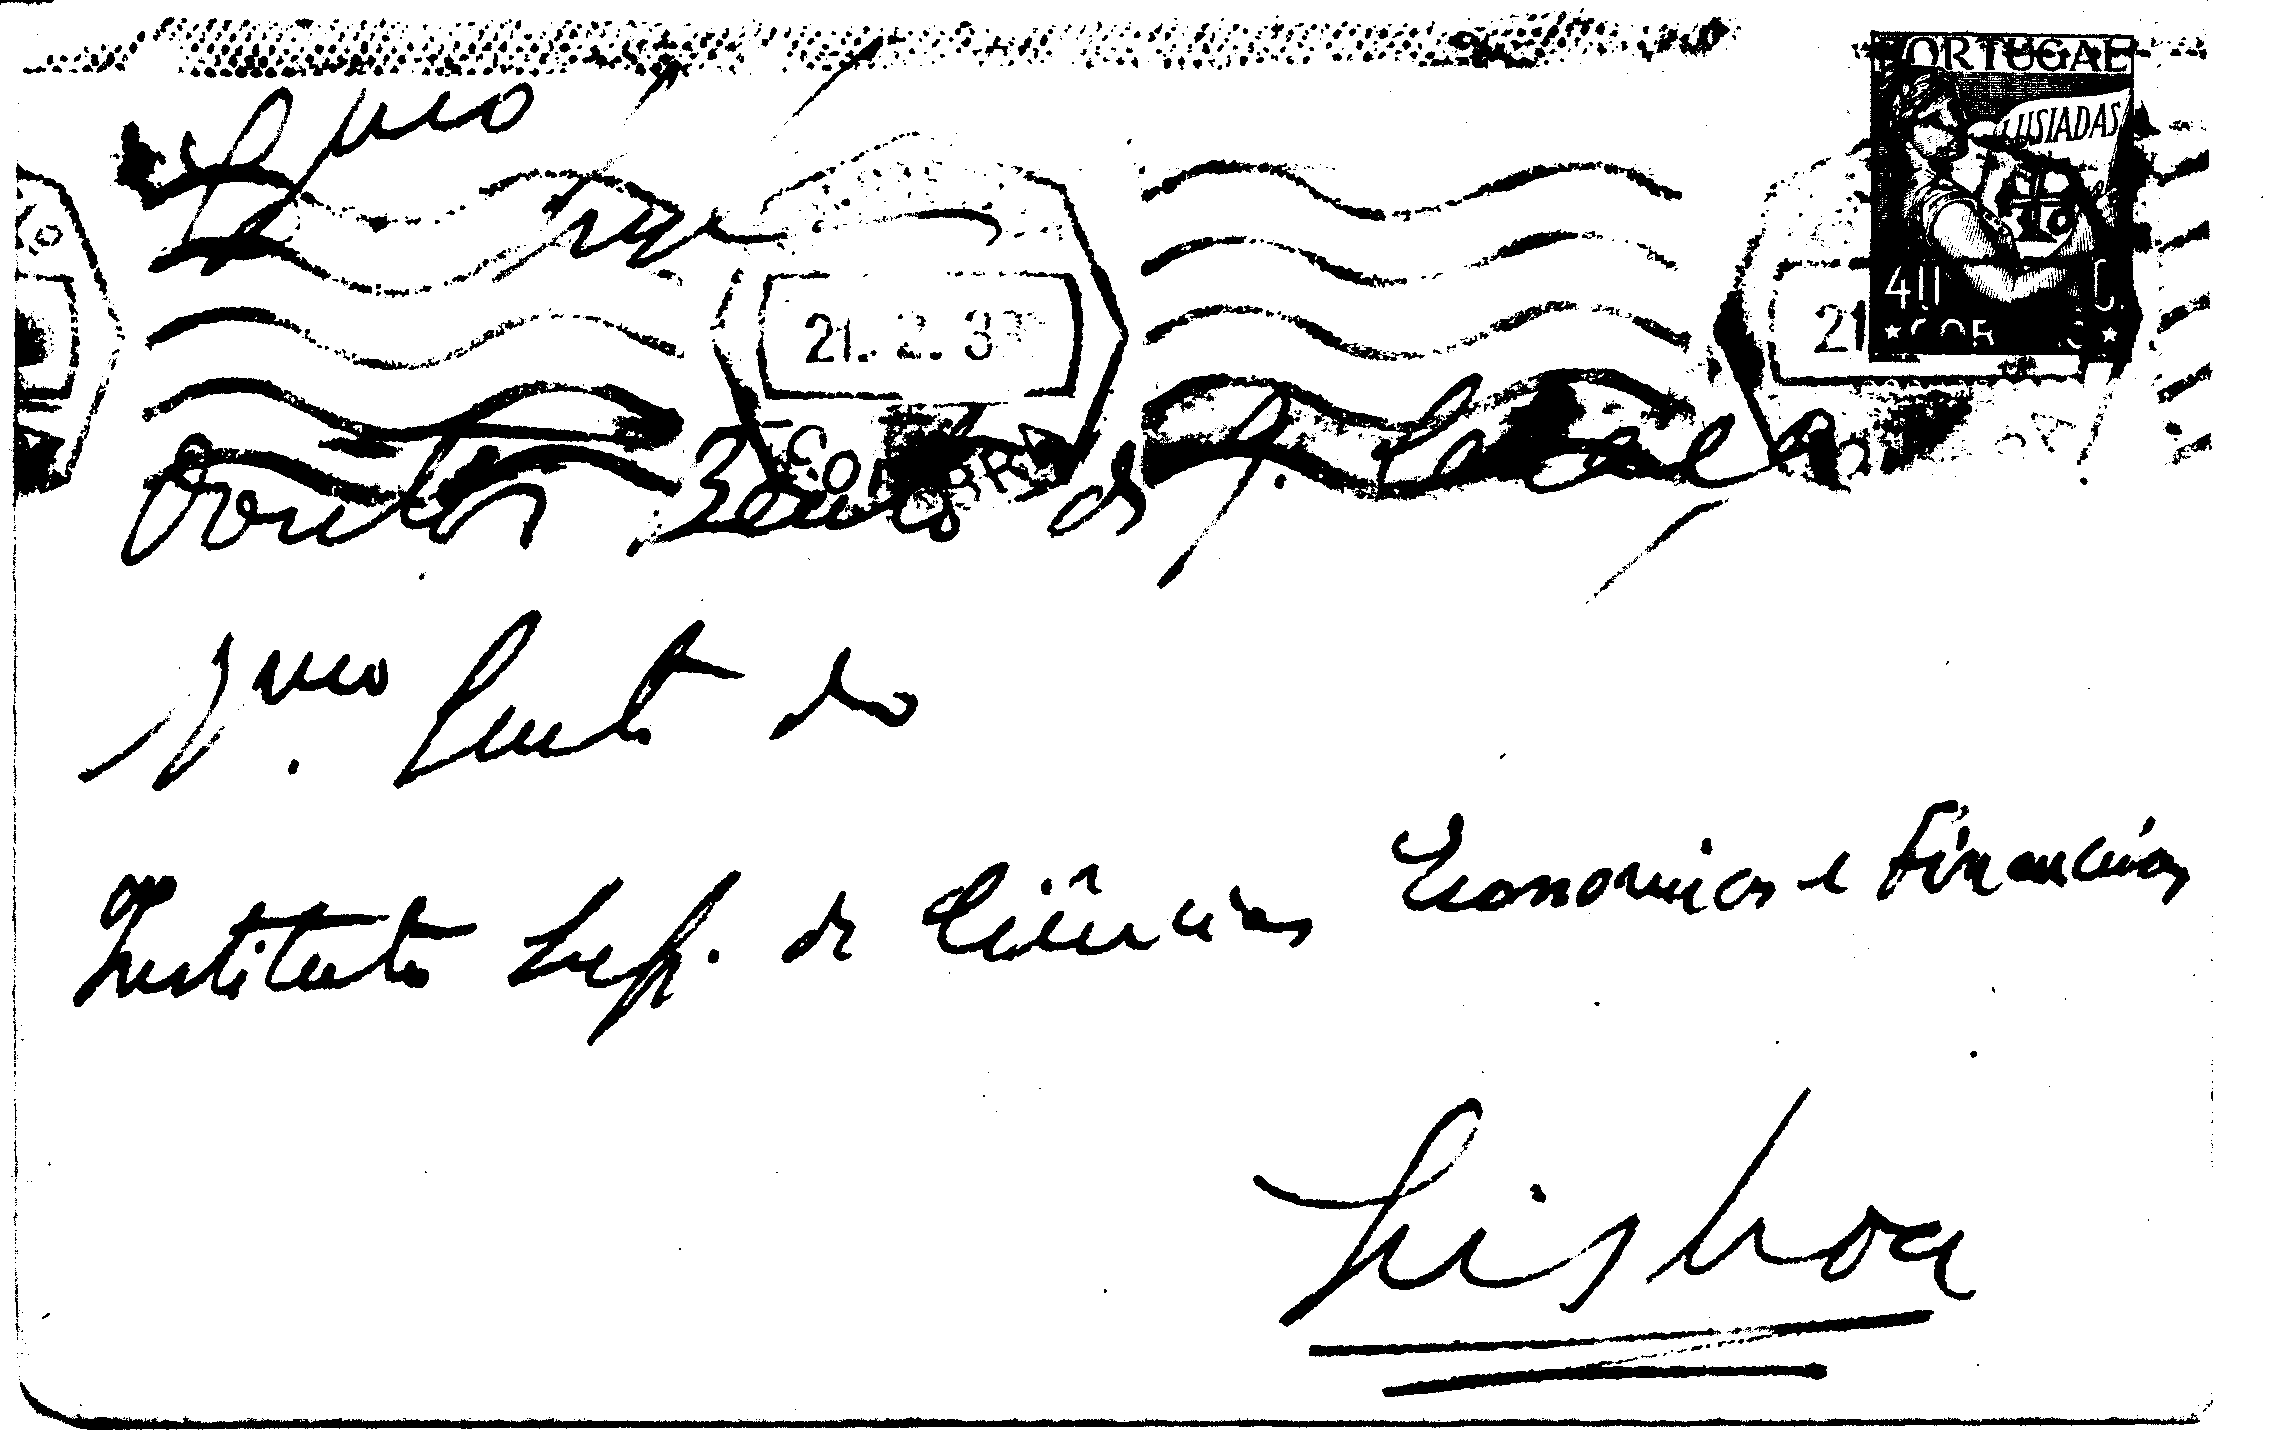 PORTUGAL
LUSIADAS
Exmo Snr
21. 2. 3
21
40 C
COIMBRA
Doutor Bento de J. Caraça
Dmo Lente do
Instituto Sup. de Ciências Economicas e Financeiras
Lisboa